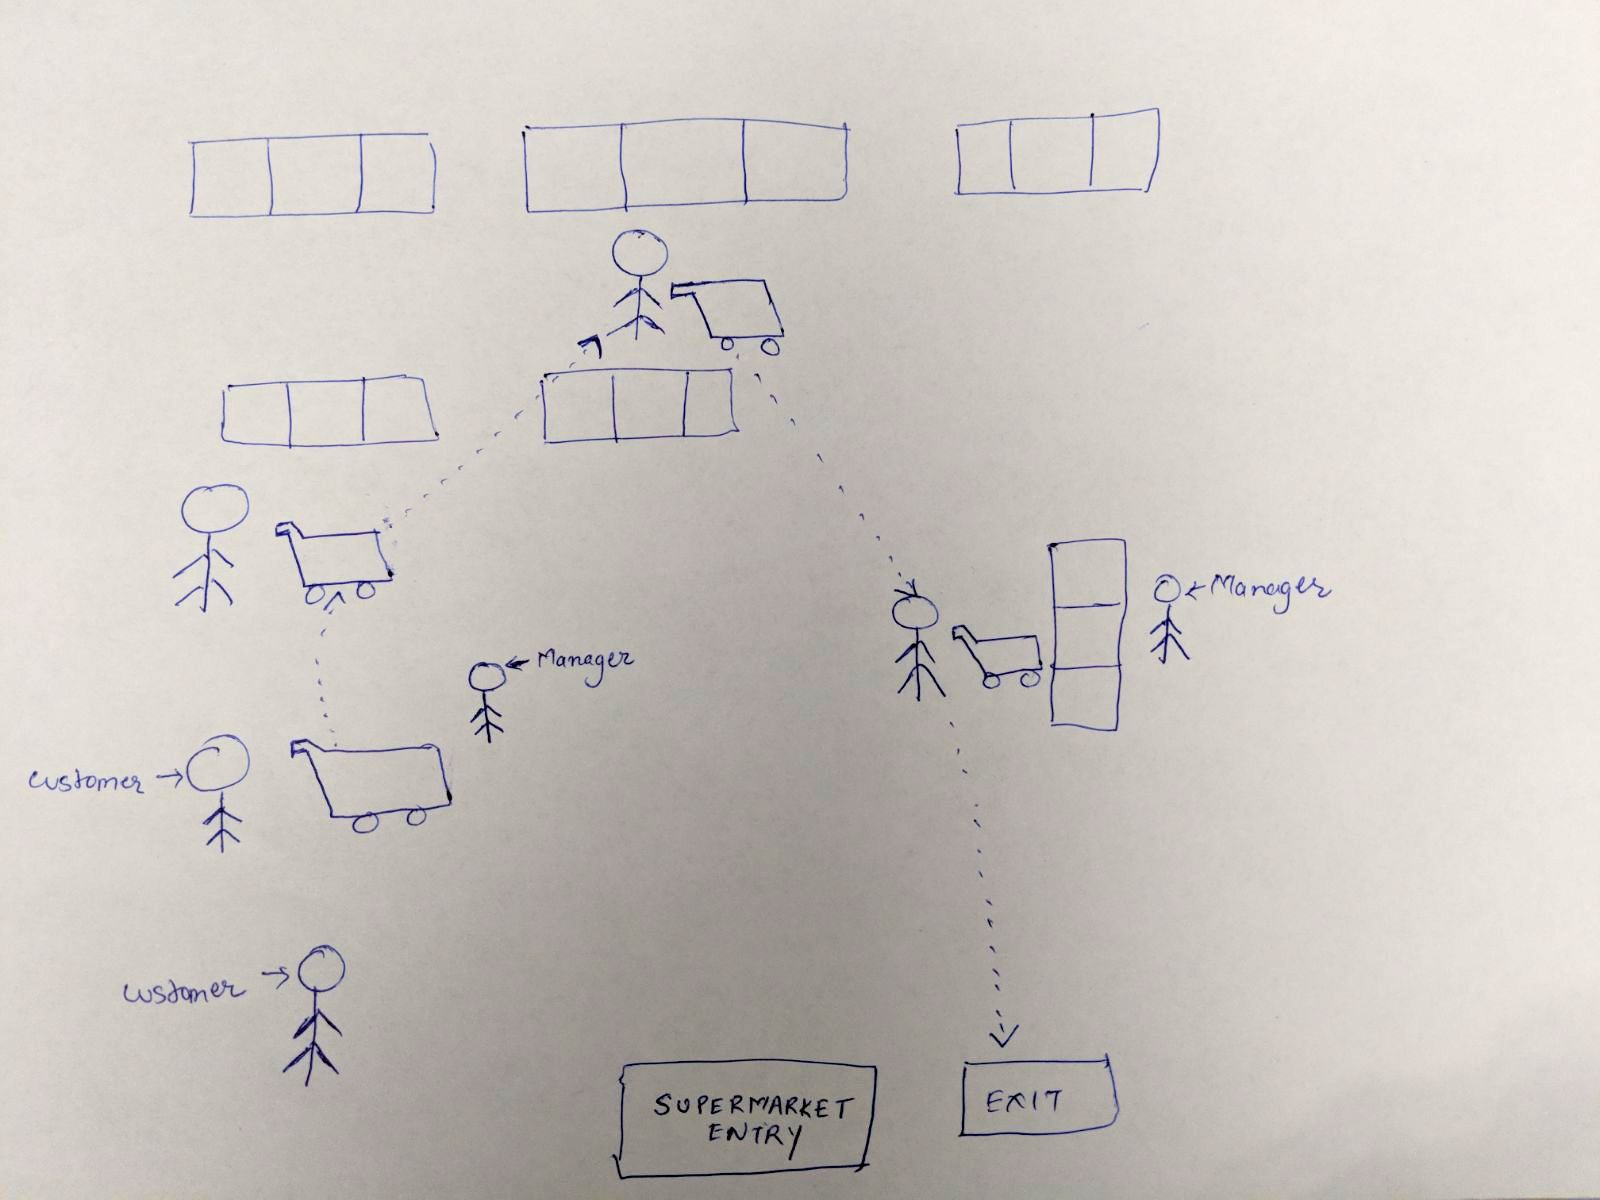 Manager
Manager
customer
customer
SUPERMARKET
ENTRY
EXIT